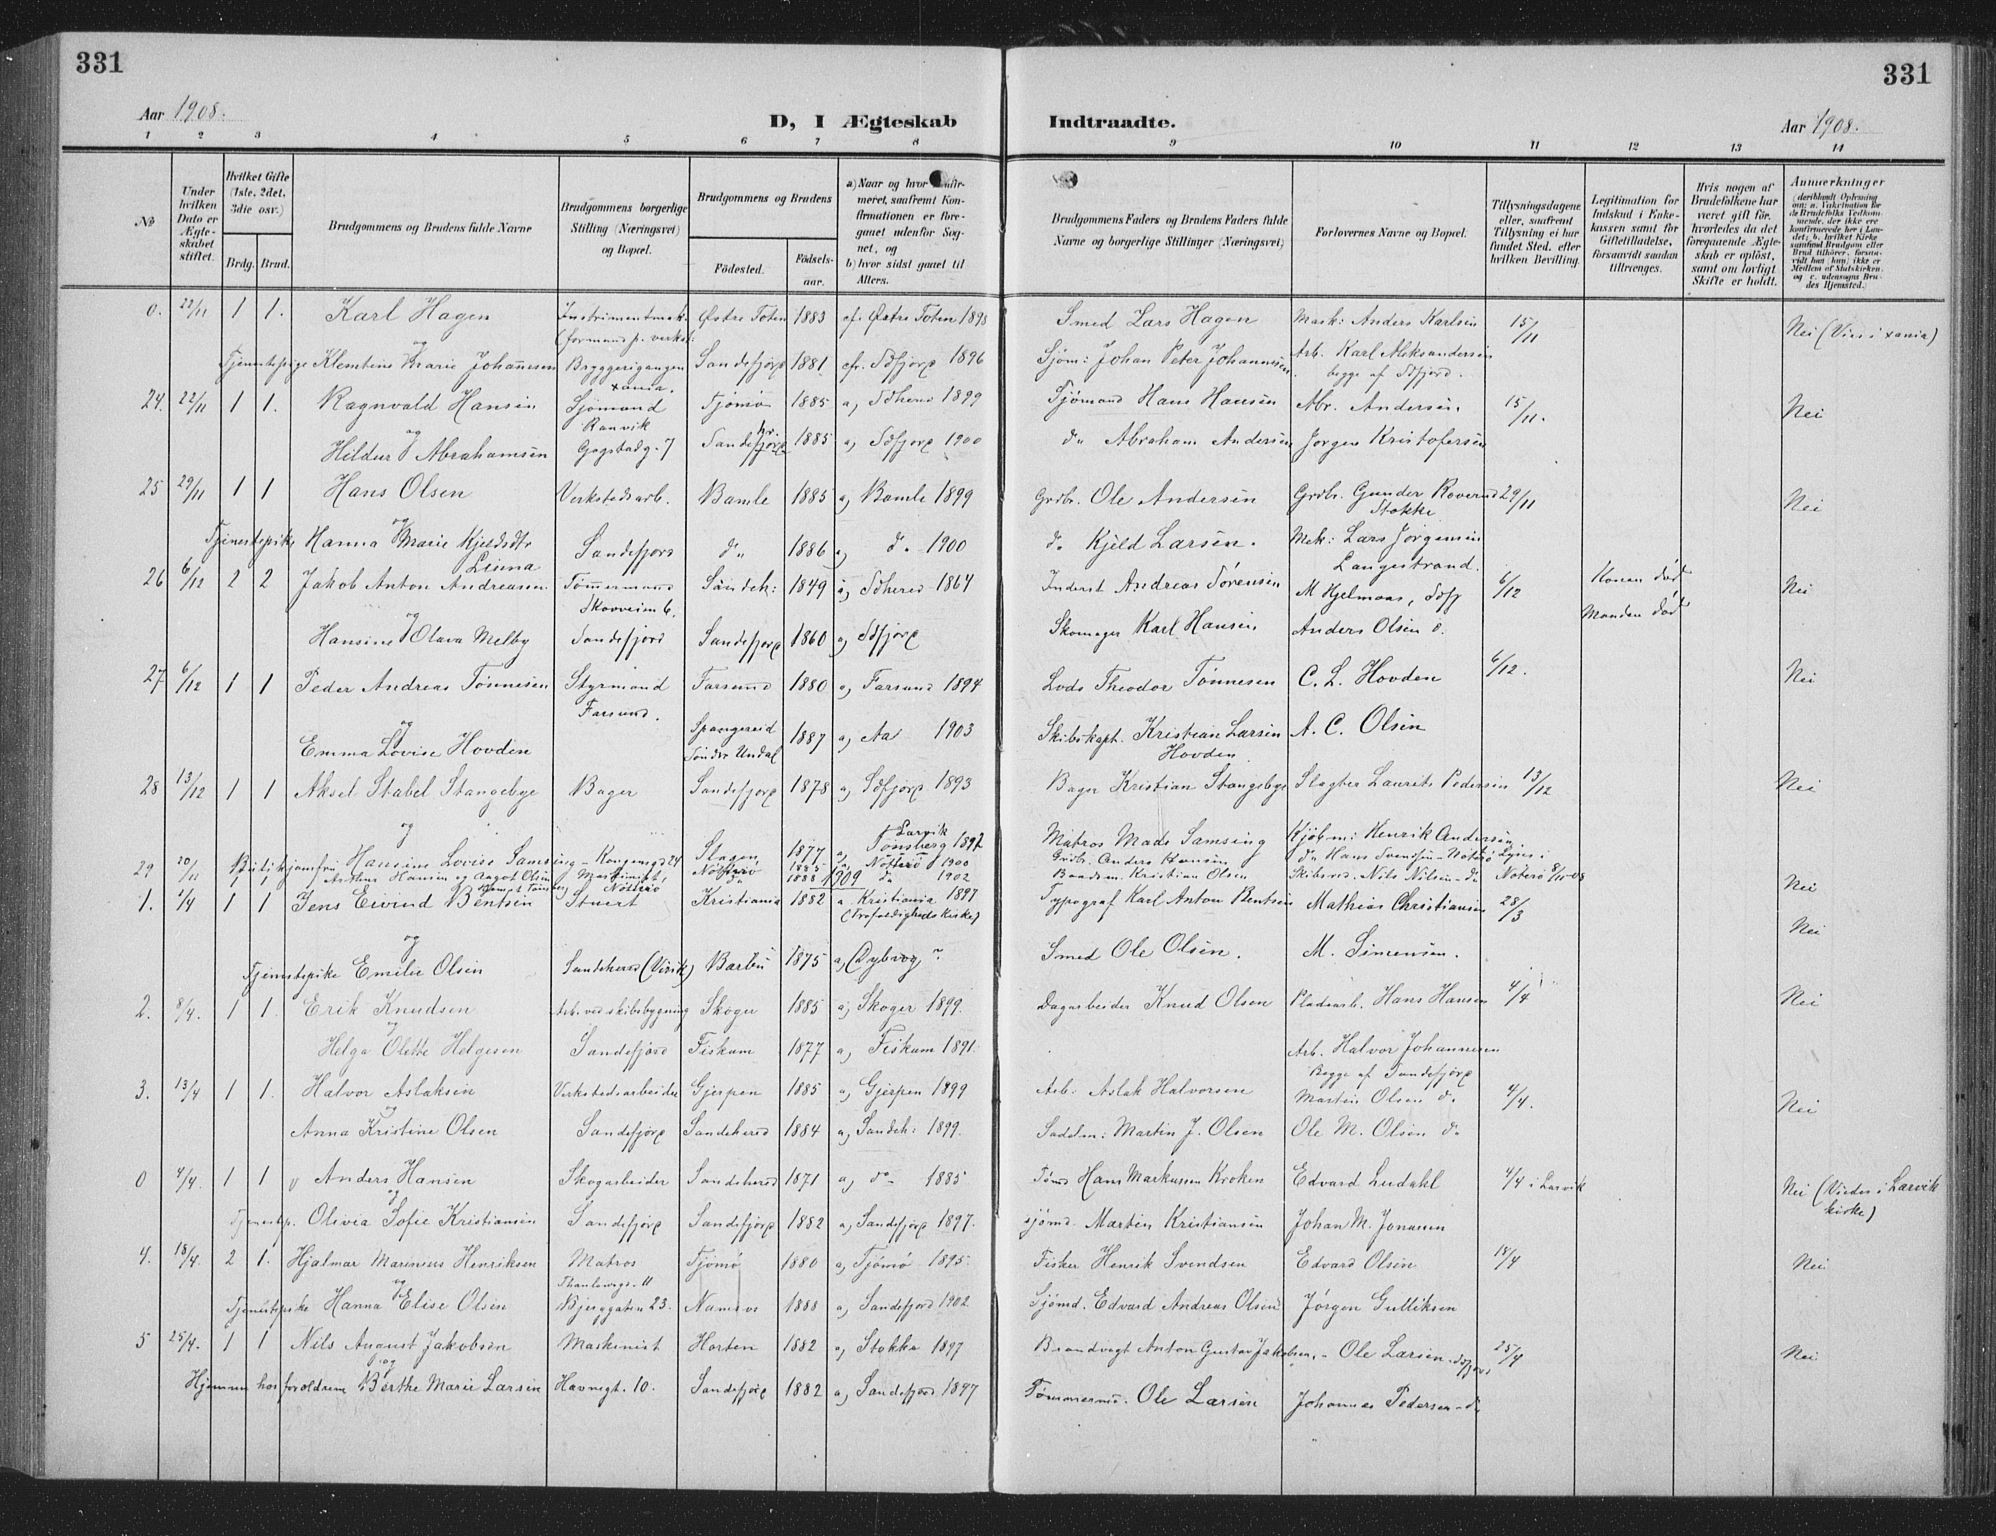 331
331
Aar 1908.
D, I Ægteskab Indtraadte.
Aar 1908.
1 2 3 4 5 6 7 8 9 10 11 12 13 14
No
Under hvilken Dato er Ægteskabet stiftet.
Hvilket Gifte (1ste, 2det, 3die osv.)
Brdg. Brud.
Brudgommens og Brudens fulde Navne
Brudgommens borgerlige Stilling (Næringsvei) og Bopæl.
Brudgommens og Brudens
Födested.
Födselsaar.
a) Naar og hvor konfirmeret, saafremt Konfirmationen er foregaaet udenfor Sognet, og
b) hvor sidst gaaet til Alters.
Brudgommens Faders og Brudens Faders fulde Navne og borgerlige Stillinger (Næringsvei)
Forlovernes Navne og Bopæl.
Tillysningsdagene eller, saafremt Tillysning ei har fundet Sted, efter hvilken Bevilling.
Legitimation for Indskud i Enkekassen samt for Giftetilladelse, forsaavidt saadan tiltrænges.
Hvis nogen af Brudefolkene har været gift før, hvorledes da det foregaaende Ægteskab er opløst, samt om lovligt Skifte er holdt.
Anmærkninger
0. 22/11 1 1. Karl Hagen Østre Toten 1883 Østre Toten 1898 Smed Lars Hagen Mask: Anders Karlsen 15/11 Nei (Viet i xania)
og
Tjenestepige Klemtine Marie Johannesen Bryggerigangen xania. Sandefjord 1881 Sdfjord 1896 Sjöm: Johan Peter Johannesen Arb. Karl Aleksandersen
begge af Sdfjord.
24. 22/11 1 1. Ragnvald Hansen Sjömand Ranvik Tjömö 1885 a) Sdherred 1899 Sjömand Hans Hansen Abr. Andersen. 15/11. Nei
og
Hildur Abrahamsen Gogstadg. 7 Sandefjord 1885 a) Sdfjord 1900 do Abraham Andersen Jørgen Kristofersen
25 29/11 1 1 Hans Olsen Verkstedsarb. Bamle 1885 a) Bamle 1899 Grdbr. Ole Andersen Grdbr. Gunder Roverud Stokke 29/11 Nei
og
Tjenestepike Hanna Marie Kjeldsdtr Sandefjord do 1886 a) do 1900 do Kjeld Larsen. Mek: Lars Jørgensen
Langestrand.
26 6/12 2 2 Jakob Anton Andreasen Tømmermand Sandeh: 1849 a) Sdhered 1864 Inderst Andreas Sørensen M Hjelmaas, Sdfj 6/12 Konen død Nei
og Skovveien 6. Manden død
Hansine Olava Melby Sandefjord Sandefjord 1860 a) Sdfjord Skomager Karl Hansen Anders Olsen
27 6/12 1 1 Peder Andreas Tønnesen Styrmand Farsund 1880 a) Farsund 1894 Lods Theodor Tønnesen C. L. Hovden 6/12. Nei
og Farsund.
Emma Lovise Hovden Spangereid Söndre Undal 1887 a) Aa 1903 Skibskapt. Kristian Larsen Hovden A. C. Olsen
28 13/12 1 1 Aksel Stabel Stangebye Bager Sandefjord 1878 a) Sdfjord 1893 Bager Kristian Stangebye Slagter Laurits Pedersen 13/12 Nei
og Larvik
Hansine Lovise Samsing - Kongensgd 24 Slagen, 1877 a) Tönsberg 1892 Matros Mads Samsing Kjöbm: Henrik Andersen
29 20/11 1 1 Arthur Hansen og Aagot Olsen Maskinist, Nötterö 1885 a) Nötterö 1900 Grdbr. Anders Hansen do Hans Svendsen - Nöterö
Nötterö do 1888 do 1902 Baadsm. Kristian Olsen Skibsred. Nils Nilsen - do Nöterö Nei
1909
1. 1/4 1 1 Jens Eivind Bentsen Stuert Kristiania 1882 a. Kristiania 1897 (Trefoldigheds kirke) Typograf Karl Anton Bentsen Mathias Christiansen 28/3 Nei
og
Tjenestepike Emilie Olsen Sandeherred (Virik) Barbu 1875 a) (Dybvog ? Smed Ole Olsen. M. Simensen.
2. 8/4. 1 1. Erik Knudsen Arb. ved skibsbygning Skoger 1885 a) Skoger 1899. Dagarbeider Knud Olsen Pladearb. Hans Hansen 4/4 Nei
og
Helga Olette Helgesen Sandefjord Fiskum 1877 a) Fiskum 1891. Arb. Halvor Johannesen
Begge af Sandefjord
3. 13/4 1 1. Halvor Aslaksen Verkstedsarbeider Gjerpen 1885 a) Gjerpen 1899 Arb. Aslak Halvorsen Martin Olsen do 4/4. Nei
og
Anna Kristine Olsen Sandefjord Sandeherred 1884 a) Sandeh: 1899. Sadelm: Martin J. Olsen Ole M. Olsen do
0 4/4. 1 1 Anders Hansen Skogarbeider Sandeherred 1871 a) do 1885 Tømd Hans Markussen Kroken Edvard Ludahl 4/4 i Larvik Nei (Viedes i Larvik kirke)
og
Tjenestep. Olivia Sofie Kristiansen Sandefjord Sandefjord 1882 a) Sandefjord 1897. sjömd. Martin Kristiansen Johan M. Jonassen
4. 18/4. 2 1. Hjalmar Marenius Henriksen Matros Tjömö 1880 a) Tjömö 1895. Fisker Henrik Svendsen Edvard Olsen 18/4 Nei
og Thaulowsgd. 11
Tjenestepike Hanna Elise Olsen Bjerggaten 23. Namsos 1888 a) Sandefjord 1902 Sjömd. Edvard Andreas Olsen Jørgen Gulliksen
5 25/4. 1 1 Nils August Jakobsen Maskinist Horten 1882 a) Stokke 1897 Brandvagt Anton Gustav Jakobsen. - Ole Larsen - Sdfjord 25/4 Nei
og
Hjemme hos foreldrene Berthe Marie Larsen Havnegt. 10. Sandefjord 1882 a) Sandefjord 1897 Tømmermd. Ole Larsen Johannes Pedersen - do